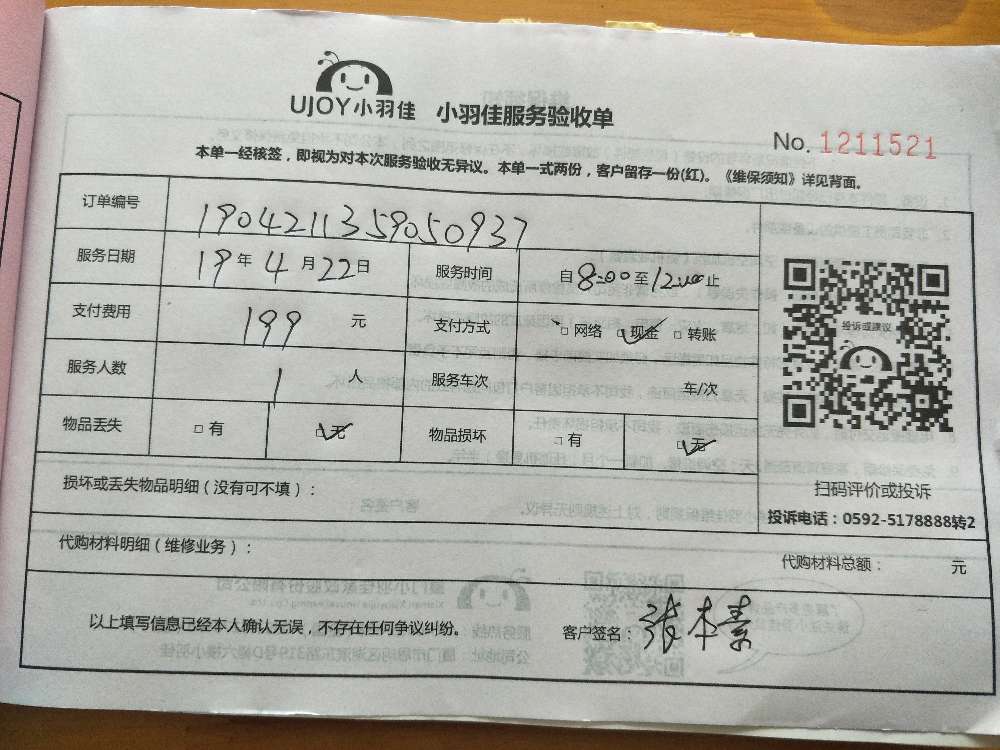 UJOY小羽佳 小羽佳服务验收单
No. 1211521
本单一经核签，即视为对本次服务验收无异议。本单一式两份，客户留存一份(红)。《维保须知》详见背面。
订单编号 1904211359050937
服务日期 19年4月22日 服务时间 自8:00至12:00止
支付费用 199 元 支付方式 □网络 □现金 □转账
投诉或建议
服务人数 1 人 服务车次 车/次
物品丢失 □有 □无 物品损坏 □有 □无
扫码评价或投诉
损坏或丢失物品明细（没有可不填）：
投诉电话：0592-5178888转2
代购材料明细（维修业务）： 代购材料总额： 元
以上填写信息已经本人确认无误，不存在任何争议纠纷。 客户签名：张本素